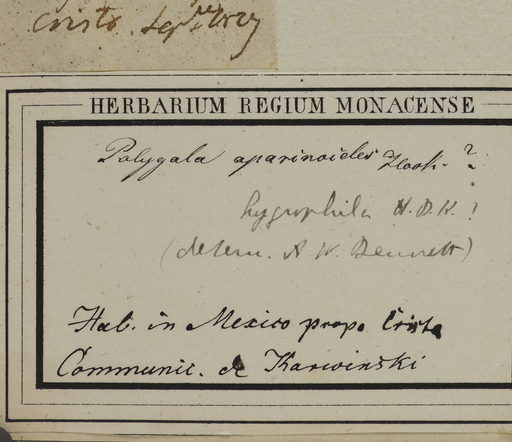 Cristo. Sept
HERBARIUM REGIUM MONACENSE
Polygala aparinoides Hook. ?
hygrophila H. B. K. ?
(determ. A. W. Bennett)
Hab. in Mexico prope Cristo
Communic. de Karwinski